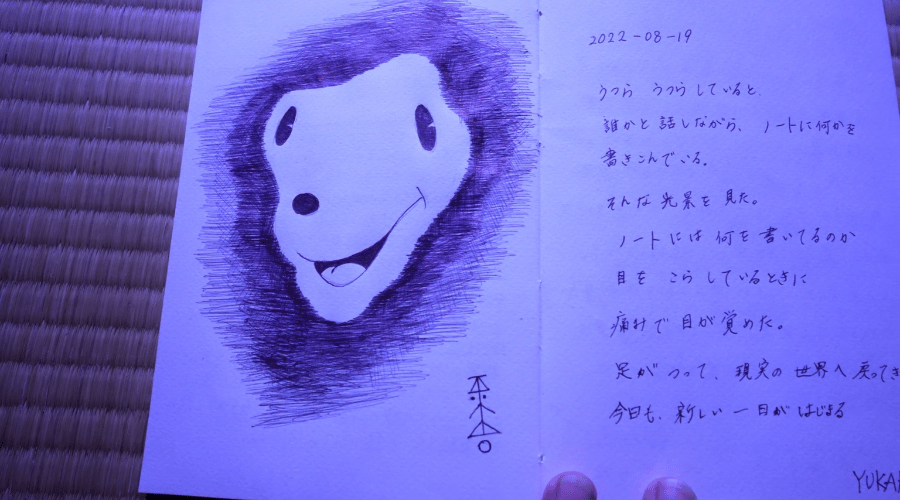 2022-08-19
うつら うつら していると、
誰かと 話しながら、 ノートに何かを
書きこんでいる。
そんな 光景を 見た。
ノートには 何を 書いてるのか
目を こらしているときに
痛みで 目が 覚めた。
足が つって、 現実の 世界へ 戻ってき
今日も、新しい 一日が はじまる
YUKA